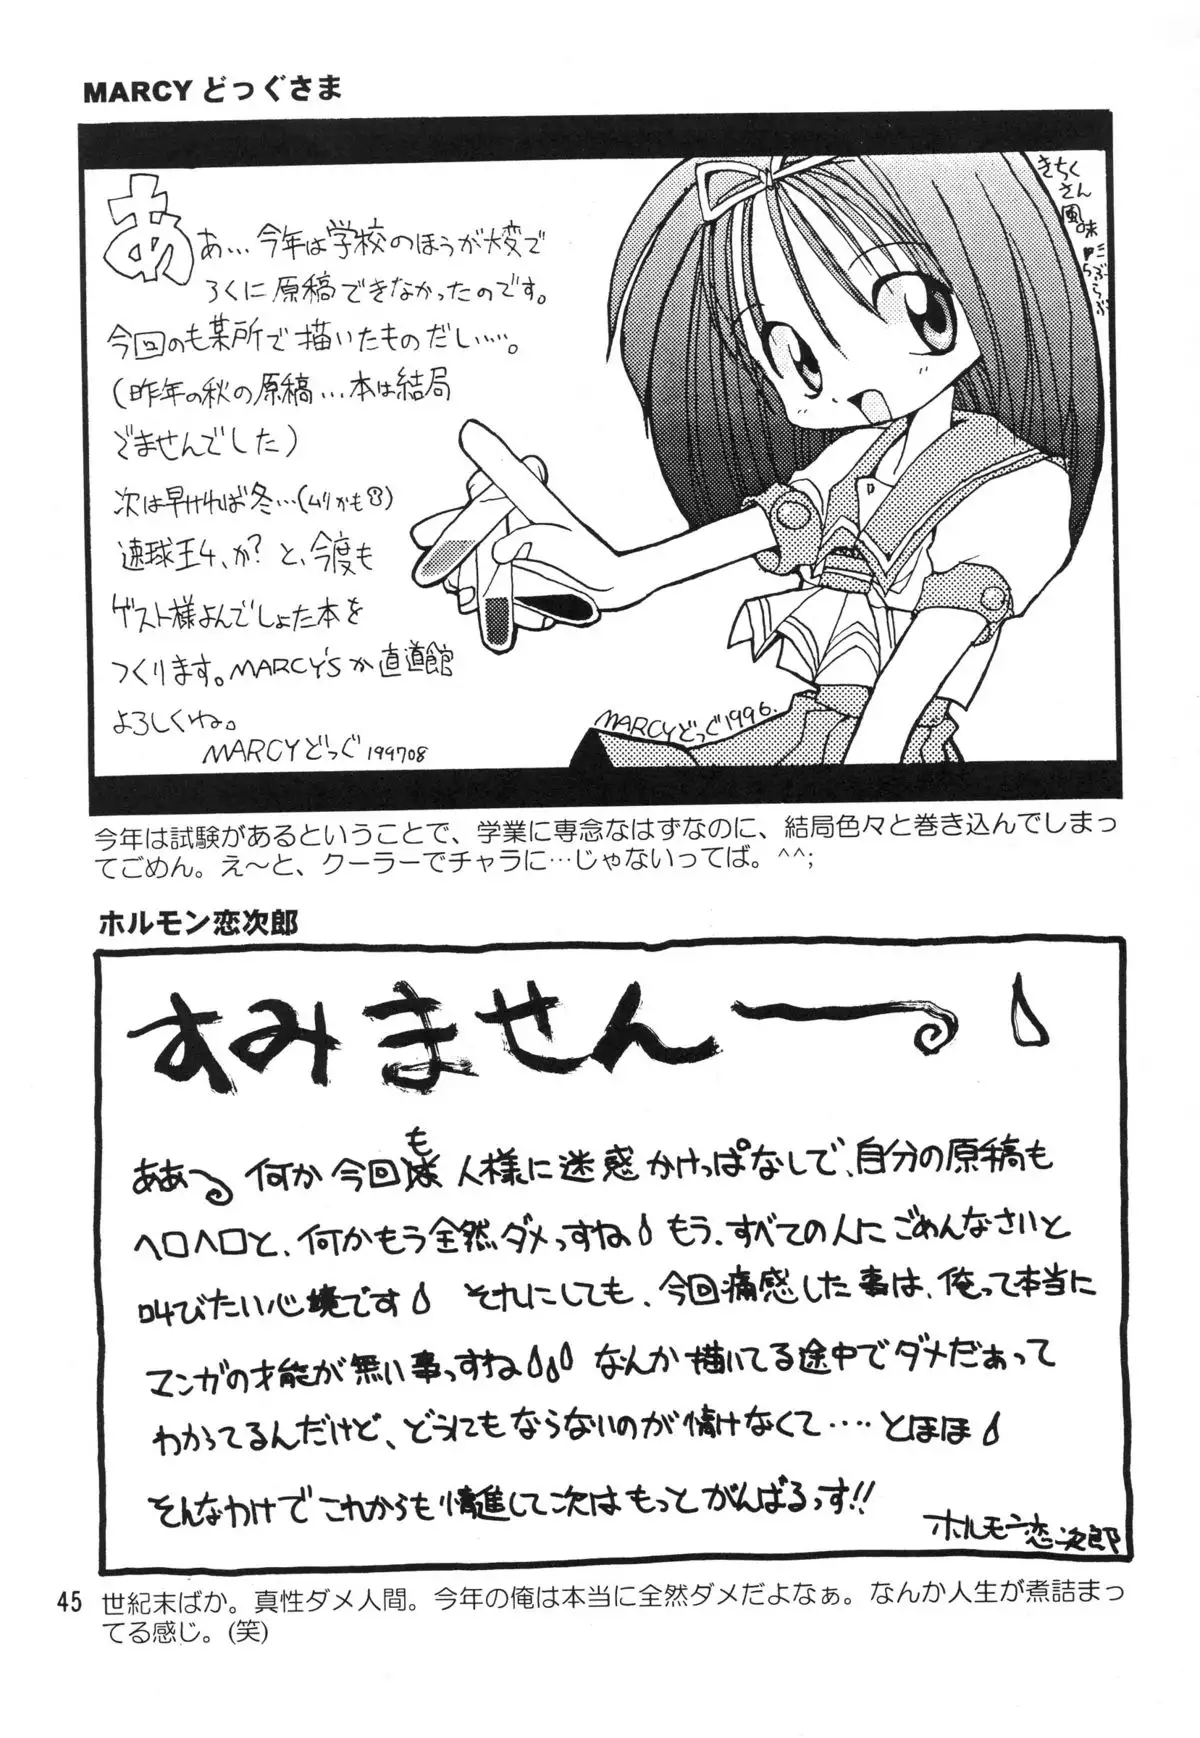 MARCY どっぐさま
あ
あ…今年は学校のほうが大変で
ろくに原稿できなかったのです。
今回のも某所で描いたものだし……。
(昨年の秋の原稿…本は結局
でませんでした)
次は早ければ冬…(ムリかも)
速球王4、か?と、今度も
ゲスト様よんでしょた本を
つくります。MARCY'Sか直道館
よろしくね。
MARCYどっぐ 199708
きちく
さん
風味
♥に
らぶらぶ
MARCYどっぐ1996.
今年は試験があるということで、学業に専念なはずなのに、結局色々と巻き込んでしまっ
てごめん。え〜と、クーラーでチャラに…じゃないってば。^^;
ホルモン恋次郎
すみませんー
も
ああ〜 何か今回 人様に迷惑かけっぱなしで、自分の原稿も
ヘロヘロと、何かもう全然ダメっすね もう、すべての人にごめんなさいと
叫びたい心境です それにしても、今回痛感した事は、俺って本当に
マンガの才能が無い事っすね なんか描いてる途中でダメだぁって
わかってるんだけど、どうにもならないのが情けなくて……とほほ
そんなわけでこれからも精進して次はもっとがんばるっす!!
ホルモン恋次郎
45 世紀末ばか。真性ダメ人間。今年の俺は本当に全然ダメだよなぁ。なんか人生が煮詰まっ
てる感じ。(笑)